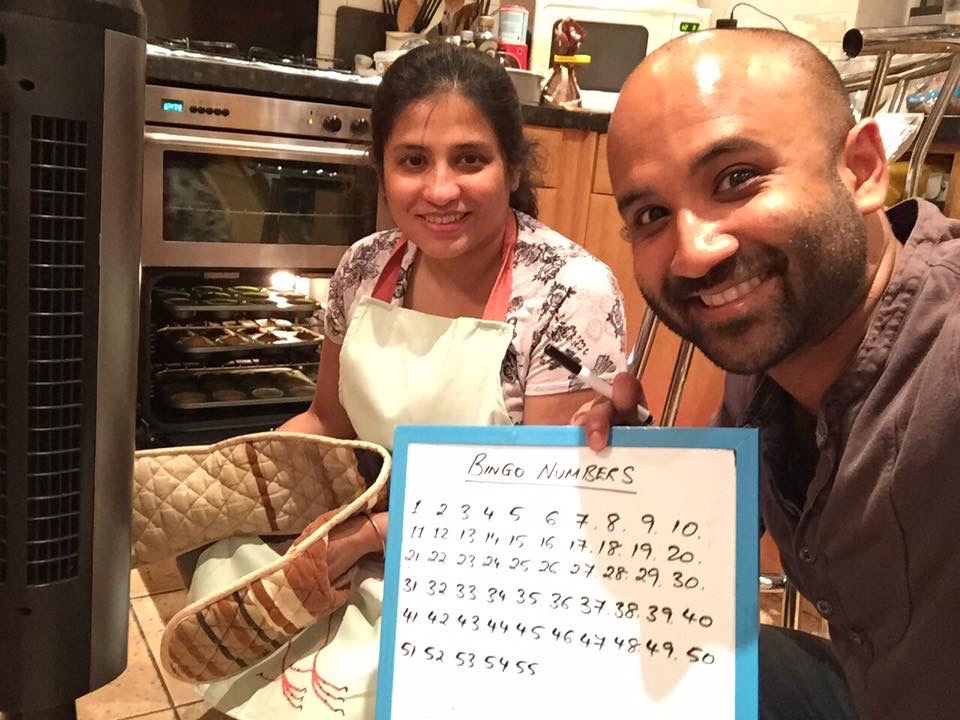 BINGO NUMBERS
1 2 3 4 5 6. 7. 8. 9. 10.
11 12 13 14 15 16 17. 18. 19. 20.
21 22 23 24 25 26 27 28. 29. 30.
31 32 33 34 35. 36. 37. 38. 39. 40
41 42 43 44 45 46 47 48. 49. 50
51 52 53 54 55